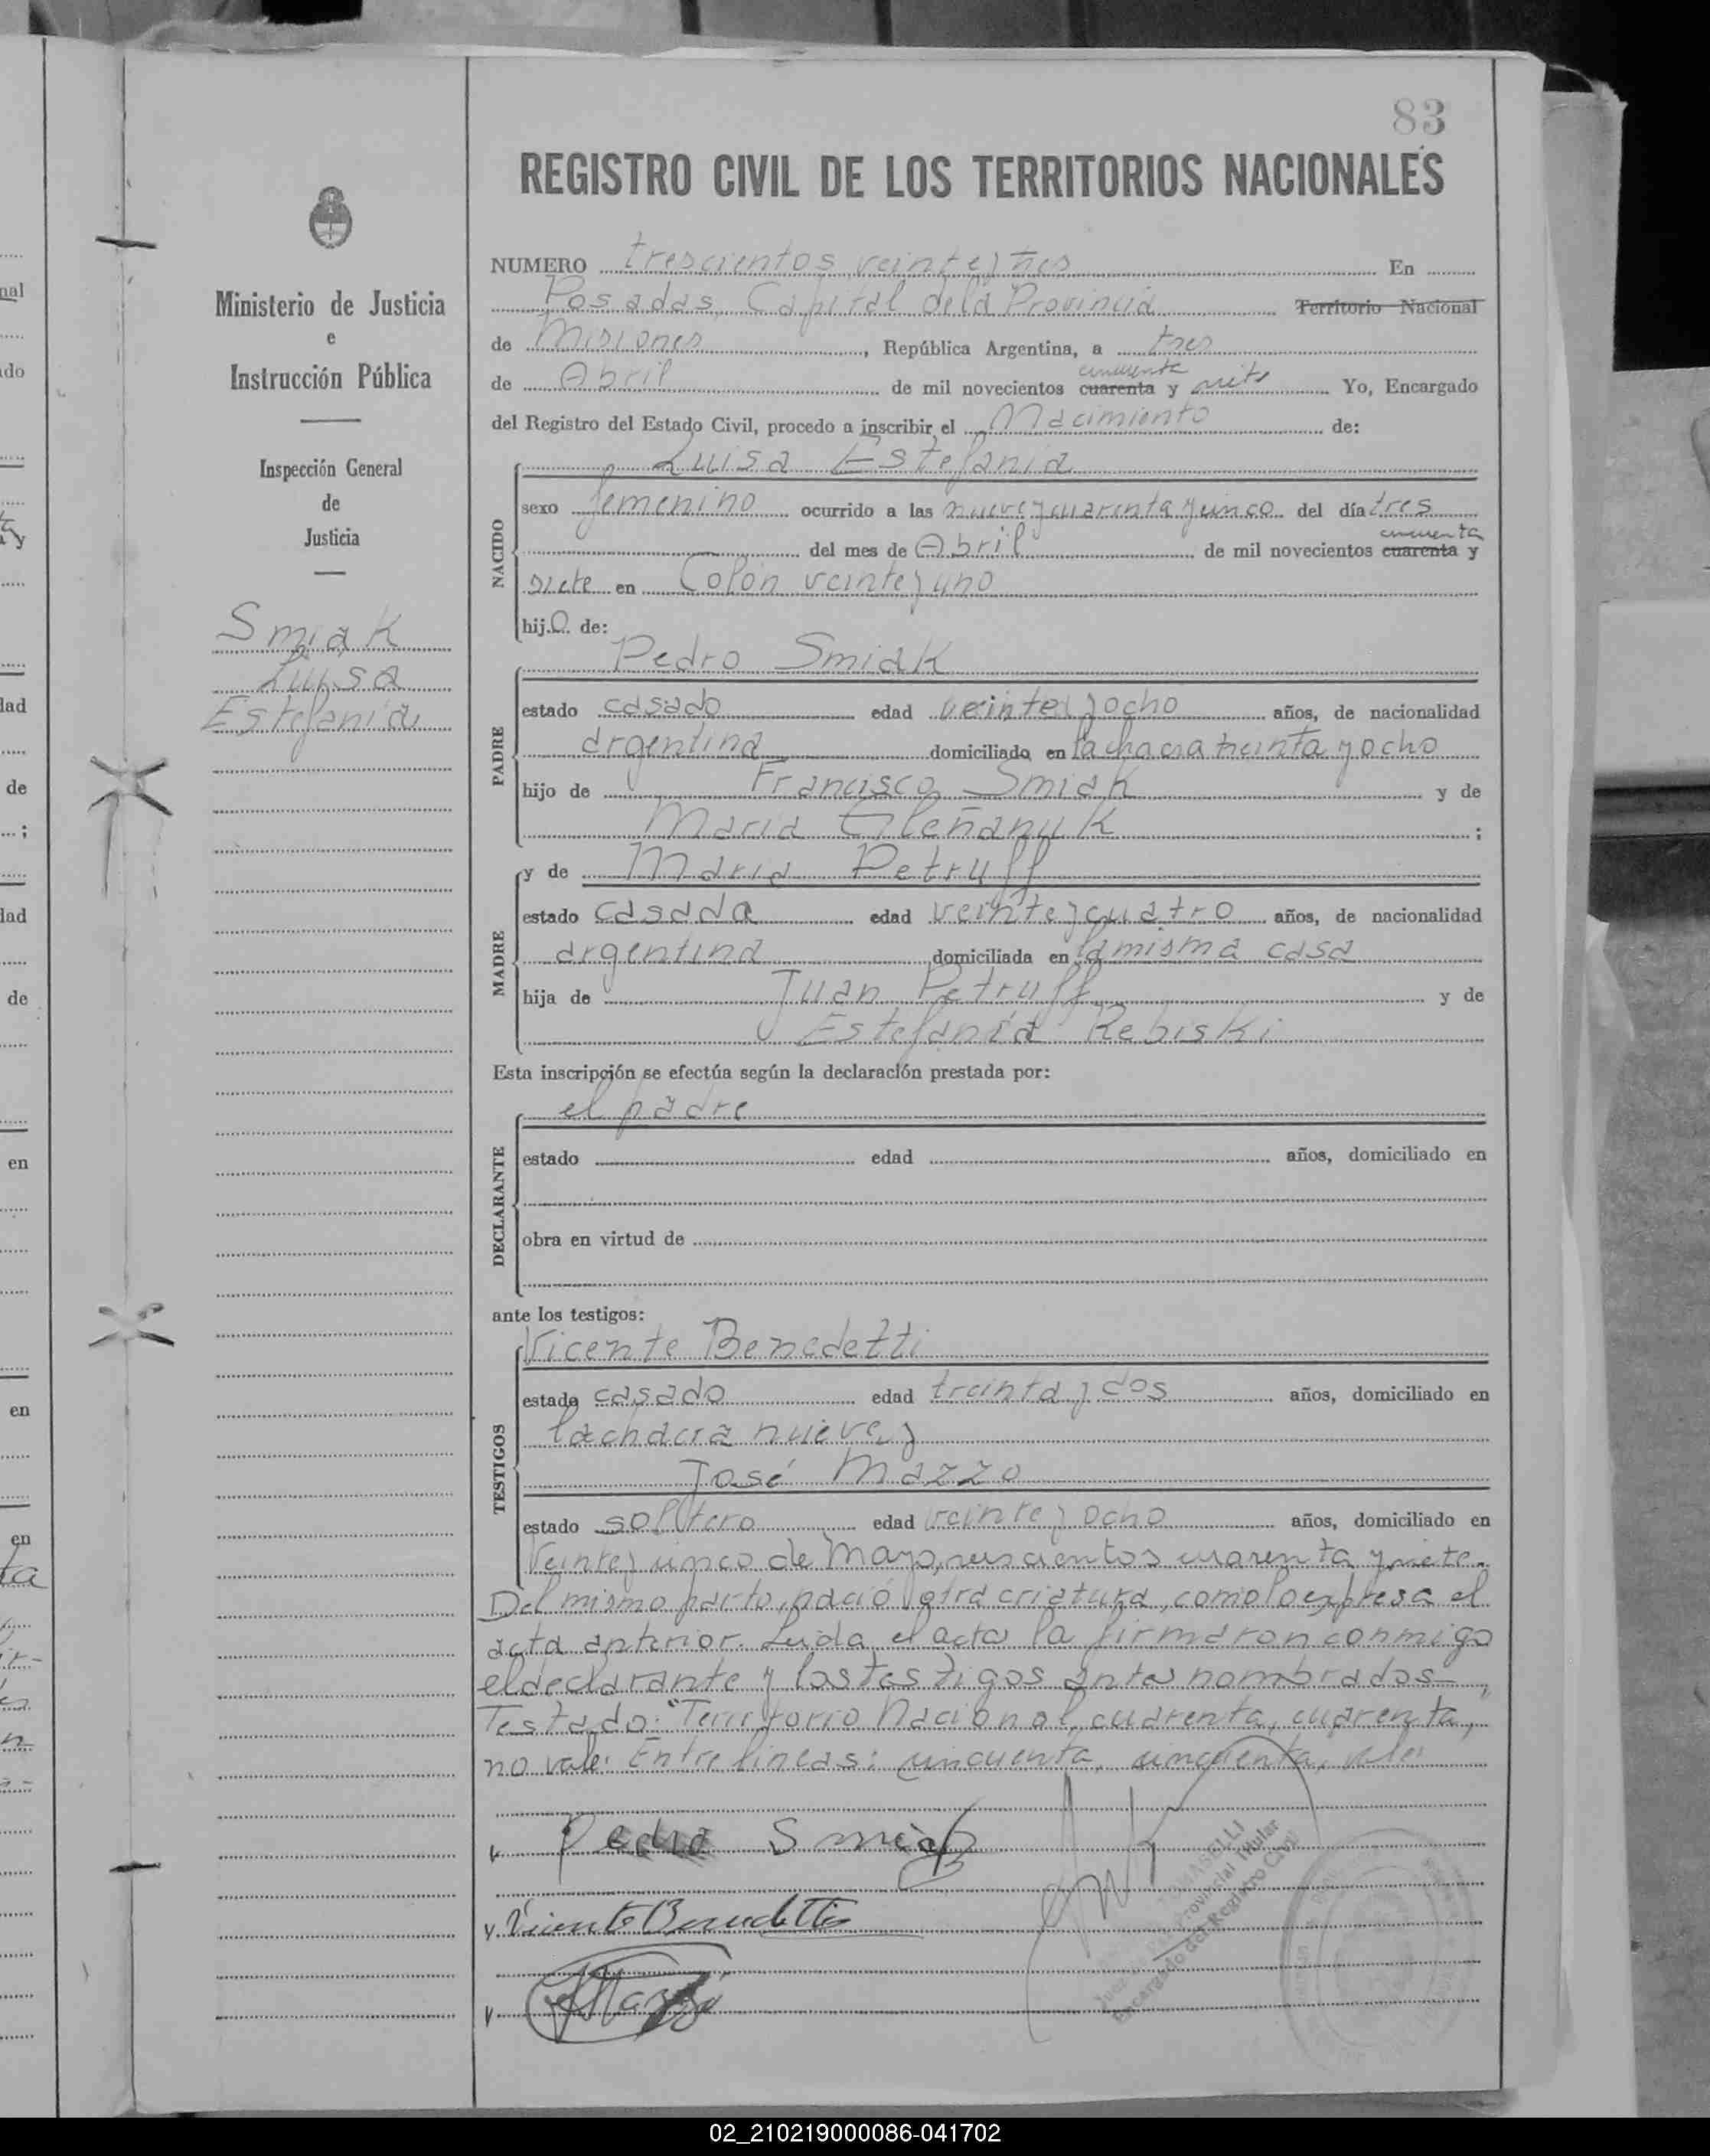 83
REGISTRO CIVIL DE LOS TERRITORIOS NACIONALES
Ministerio de Justicia
e
Instrucción Pública
Inspección General
de
Justicia
Smiak
Luisa
Estefanía
NUMERO trescientos veinte y tres En
Posadas, Capital de la Provincia Territorio Nacional
de Misiones, República Argentina, a tres
cincuenta
de Abril de mil novecientos cuarenta y siete Yo, Encargado
del Registro del Estado Civil, procedo a inscribir el Nacimiento de:
Luisa Estefanía
NACIDO
sexo femenino ocurrido a las nueve y cuarenta y cinco del día tres
cincuenta
del mes de Abril de mil novecientos cuarenta y
siete en Colón veinte y uno
hija de:
Pedro Smiak
PADRE
estado casado edad veinte y ocho años, de nacionalidad
argentina domiciliado en la chacra treinta y ocho
hijo de Francisco Smiak y de
María Oleñanuk;
y de María Petruff
MADRE
estado casada edad veinte y cuatro años, de nacionalidad
argentina domiciliada en la misma casa
hija de Juan Petruff y de
Estefanía Rebiski
Esta inscripción se efectúa según la declaración prestada por:
el padre
DECLARANTE
estado edad años, domiciliado en
obra en virtud de
ante los testigos:
Vicente Benedetti
TESTIGOS
estado casado edad treinta y dos años, domiciliado en
la chacra nueve, y
José Mazzo
estado soltero edad veinte y ocho años, domiciliado en
Veinte y cinco de Mayo, seiscientos cuarenta y siete.
Del mismo parto, nació otra criatura, como lo expresa el
acta anterior. Leída el acta la firmaron conmigo
el declarante y los testigos antes nombrados
Testado: "Territorio Nacional, cuarenta, cuarenta,"
no vale. Entre líneas: cincuenta, cincuenta, vale.
Pedro Smiak
Vicente Benedetti
Mazzo
Provincial Titular
Encargado del Registro Civil
02_210219000086-041702